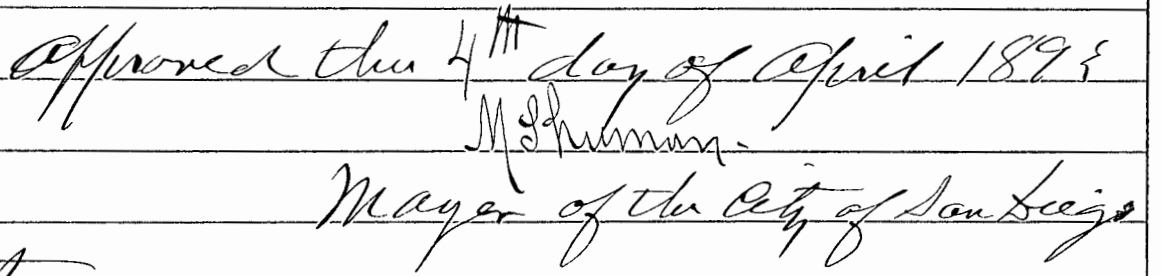 Approved this 4th day of April 1893
M Sherman.
Mayor of the City of San Diego